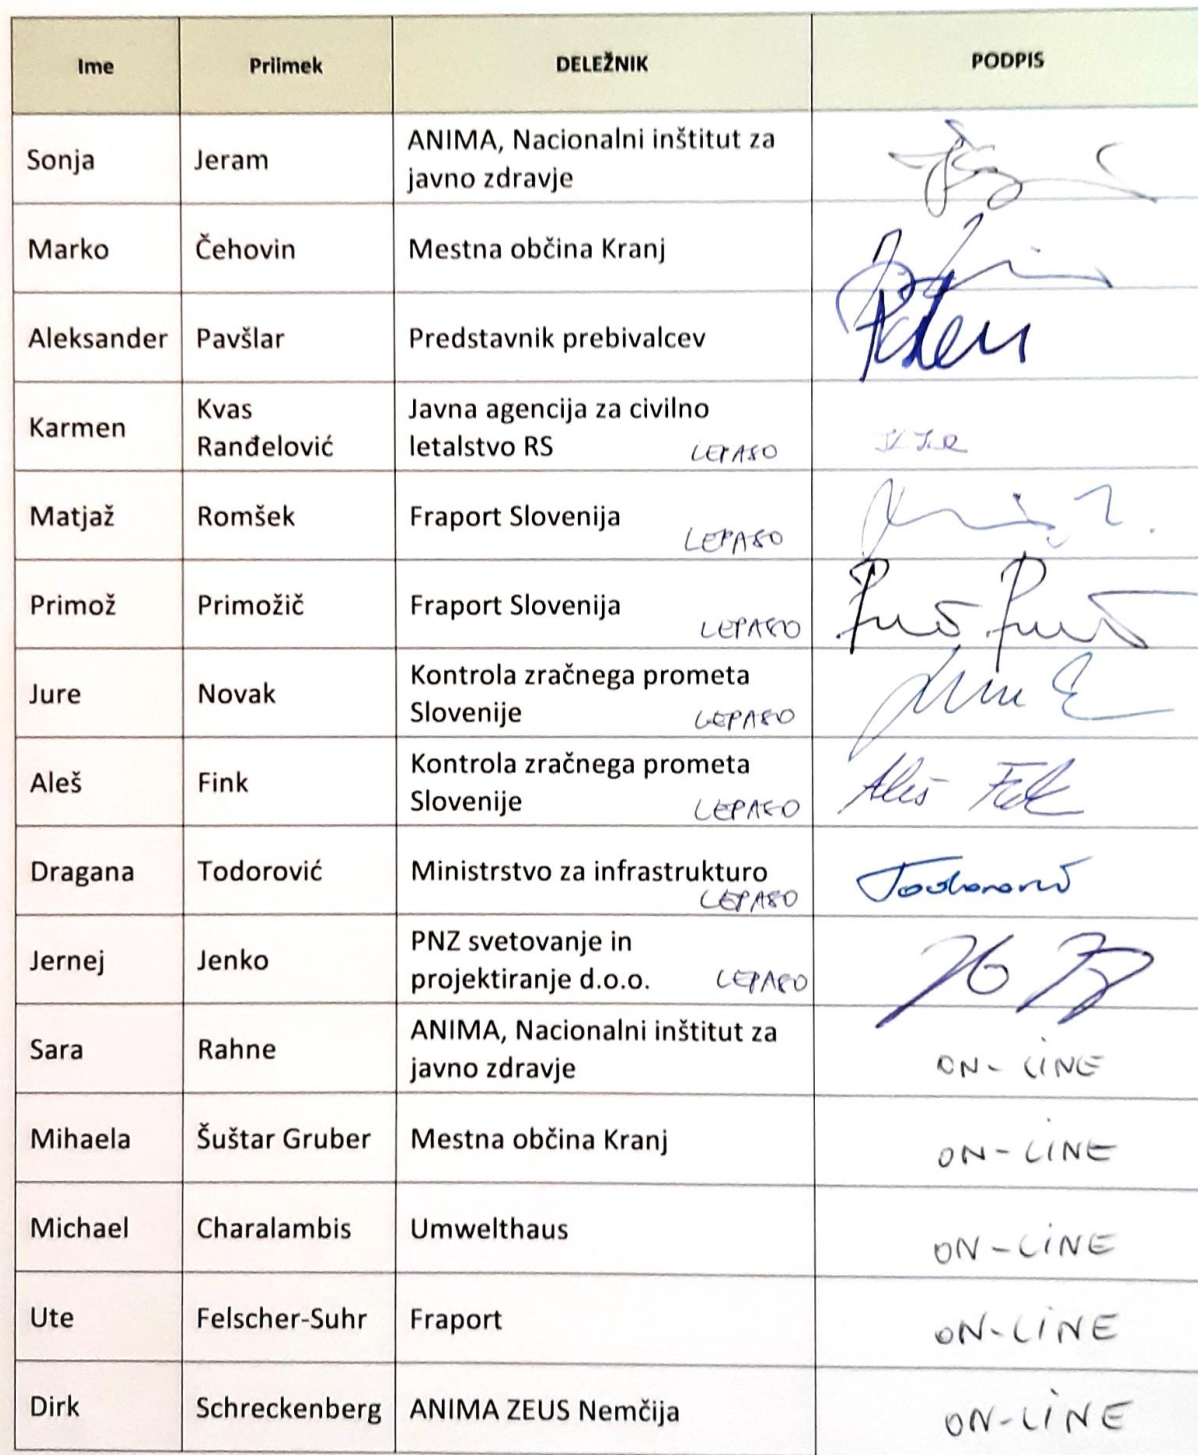 Ime Priimek DELEŽNIK PODPIS
Sonja Jeram ANIMA, Nacionalni inštitut za
javno zdravje
Marko Čehovin Mestna občina Kranj
Aleksander Pavšlar Predstavnik prebivalcev
Karmen Kvas Javna agencija za civilno
Ranđelović letalstvo RS LEPASO
Matjaž Romšek Fraport Slovenija
LEPASO
Primož Primožič Fraport Slovenija
LEPASO
Jure Novak Kontrola zračnega prometa
Slovenije LEPASO
Aleš Fink Kontrola zračnega prometa Aleš
Slovenije LEPASO
Dragana Todorović Ministrstvo za infrastrukturo Todorović
LEPASO
Jernej Jenko PNZ svetovanje in
projektiranje d.o.o. LEPASO
Sara Rahne ANIMA, Nacionalni inštitut za
javno zdravje ON-LINE
Mihaela Šuštar Gruber Mestna občina Kranj ON-LINE
Michael Charalambis Umwelthaus ON-LINE
Ute Felscher-Suhr Fraport ON-LINE
Dirk Schreckenberg ANIMA ZEUS Nemčija ON-LINE